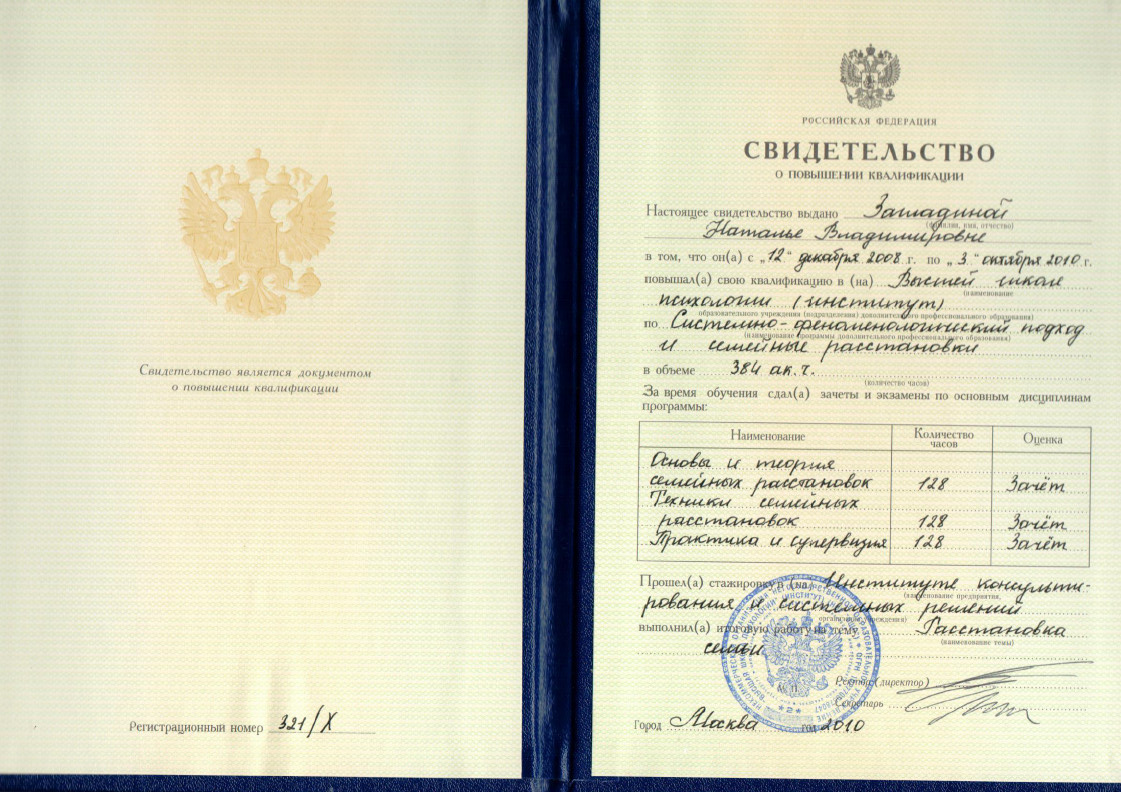 Свидетельство является документом
о повышении квалификации
Регистрационный номер 321/X
РОССИЙСКАЯ ФЕДЕРАЦИЯ
СВИДЕТЕЛЬСТВО
О ПОВЫШЕНИИ КВАЛИФИКАЦИИ
Настоящее свидетельство выдано Загладиной
(фамилия, имя, отчество)
Наталье Владимировне
в том, что он(а) с „12“ декабря 2008 г. по „3“ октября 2010 г.
повышал(а) свою квалификацию в (на) Высшей школе
(наименование
психологии (институт)
образовательного учреждения (подразделения) дополнительного профессионального образования)
по Системно-феноменологический подход
(наименование программы дополнительного профессионального образования)
и семейные расстановки
в объеме 384 ак.ч.
(количество часов)
За время обучения сдал(а) зачеты и экзамены по основным дисциплинам
программы:
Наименование Количество часов Оценка
Основы и теория
семейных расстановок 128 Зачёт
Техники семейных
расстановок 128 Зачёт
Практика и супервизия 128 Зачёт
Прошел(а) стажировку в (на) Институте консульти-
(наименование предприятия,
рования и системных решений
организации, учреждения)
выполнил(а) итоговую работу на тему Расстановка
(наименование темы)
семьи
М. П.
Ректор (директор)
Секретарь
Город Москва год 2010